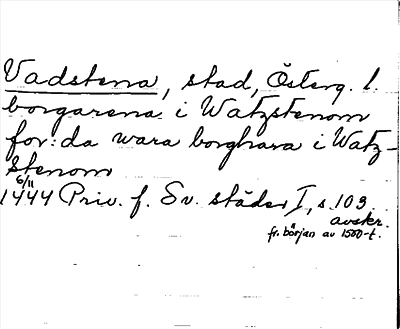 Vadstena, stad, Österg. l.
borgarena i Watzstenom
for:da wara borghara i Watz-
stenom
6/11
1444 Priv. f. Sv. städer I, s. 103.
avskr.
fr. början av 1500-t.